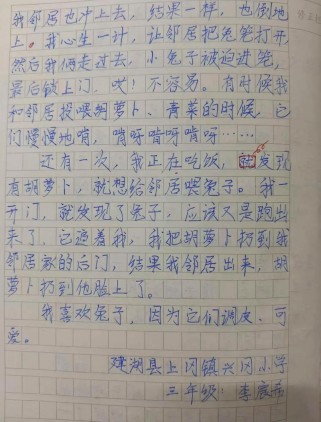 我邻居也冲上去，结果一样，也倒地
上。我心生一计，让邻居把兔笼打开
然后我俩走过去，小兔子被迫进笼，
最后锁上门，哎！不容易。有时候我
和邻居投喂胡萝卜、青菜的时候，它
们慢慢地啃，啃呀啃呀啃呀……
还有一次，我正在吃饭，就发现
有胡萝卜，就想给邻居喂兔子。我一
开门，就发现了兔子，应该又是跑出
来了，它追着我，我把胡萝卜扔到我
邻居家的后门，结果我邻居出来，胡
萝卜扔到他脸上了。
我喜欢兔子，因为它们调皮、可
爱。
建湖县上冈镇兴冈小学
三年级：李宸希